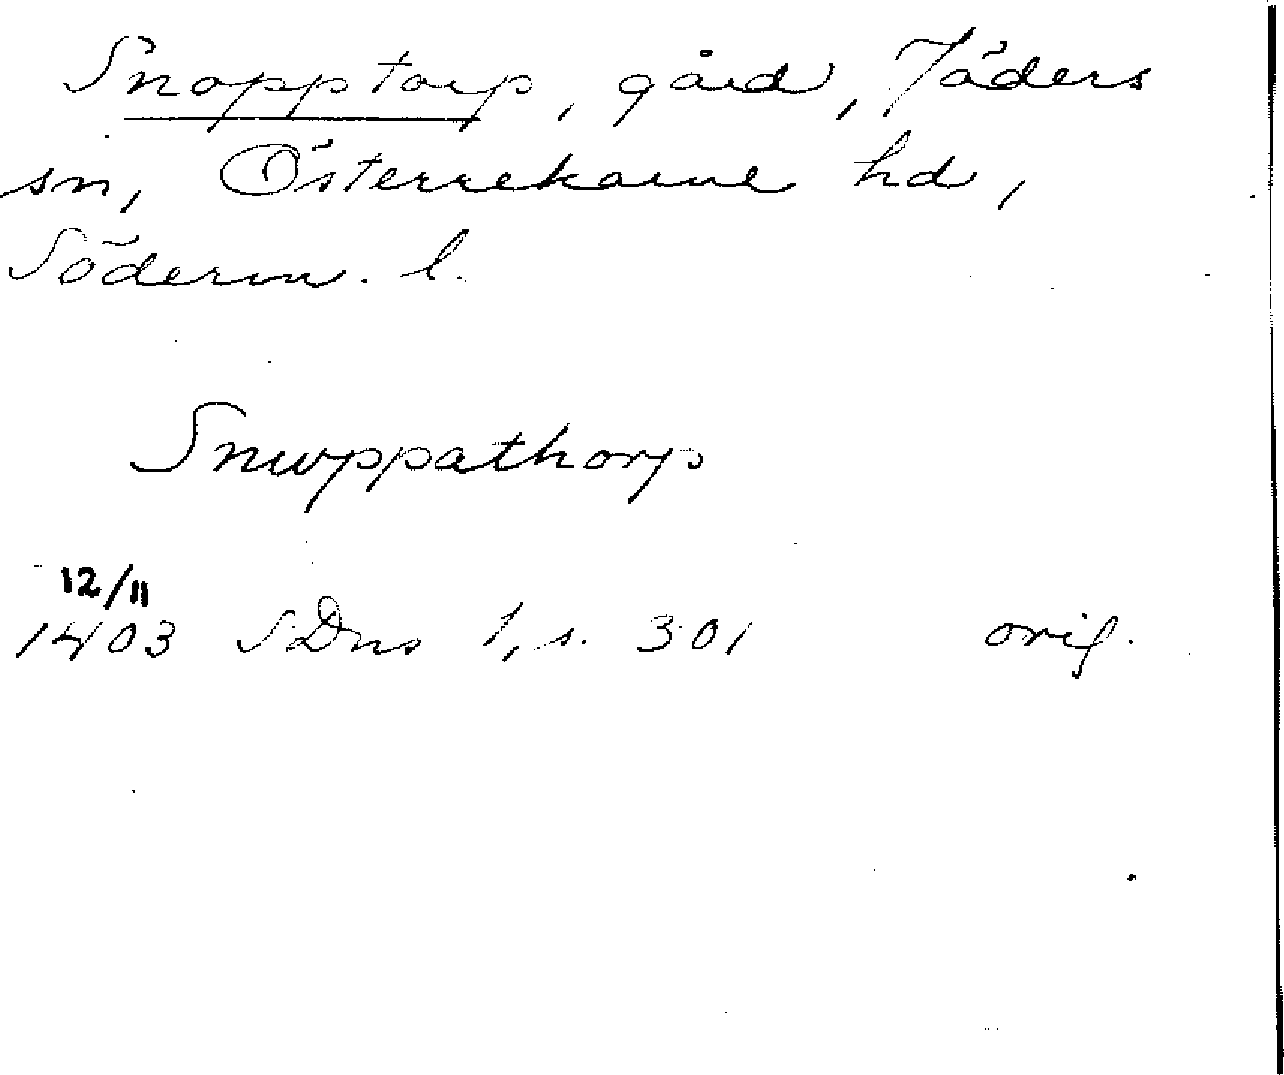 Snopptorp, gård, Jäders
sn, Österrekarne hd,
Söderm. l.
Snwppathorp
12/11
1403 SDns 1, s. 301 orig.